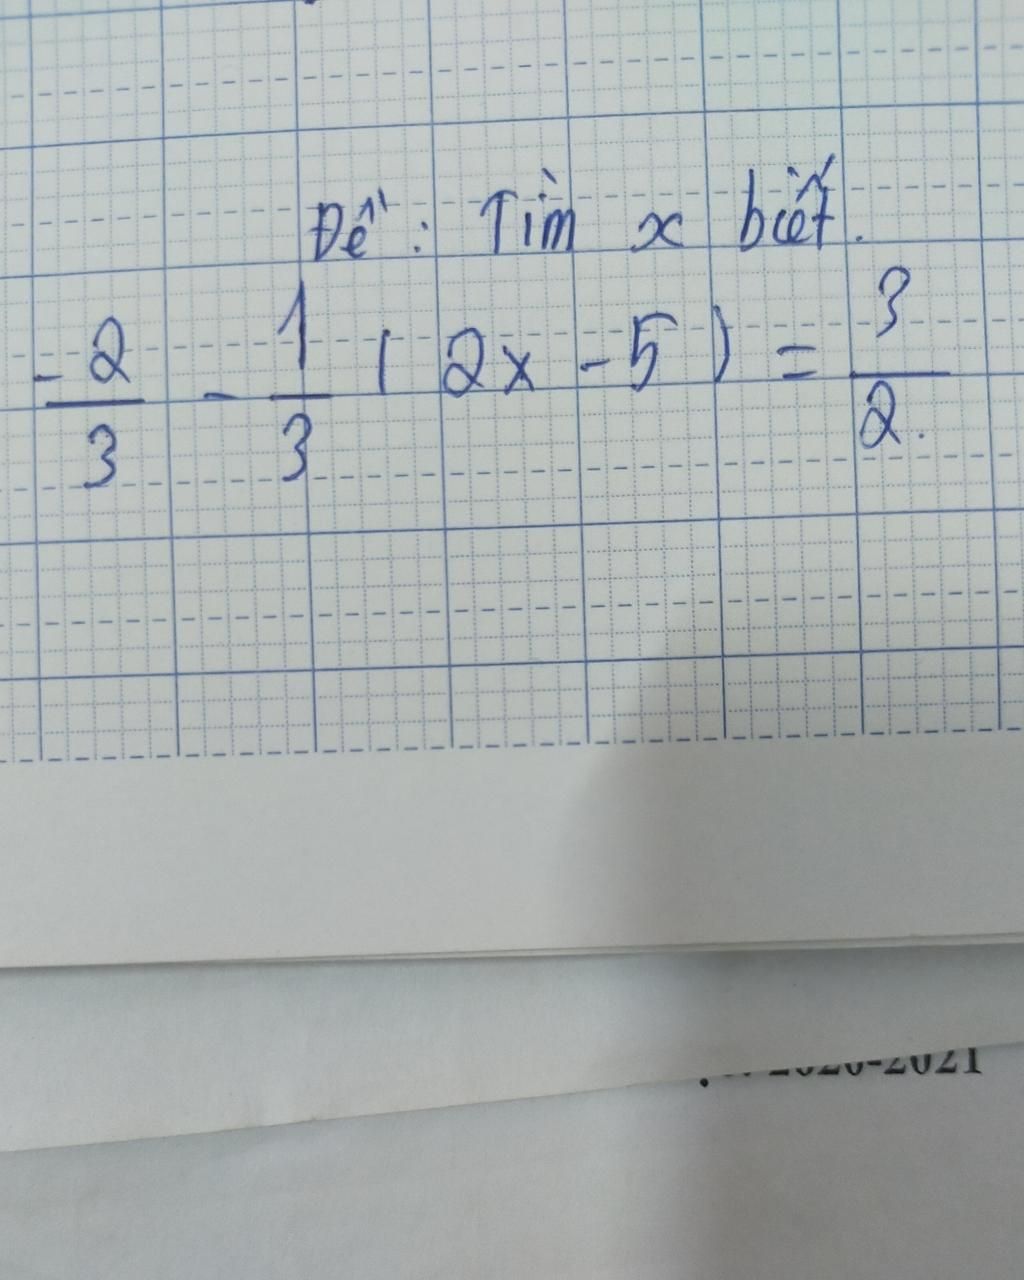 Đề : Tìm x biết.
-2/3 - 1/3 ( 2x - 5 ) = 3/2.
2020-2021